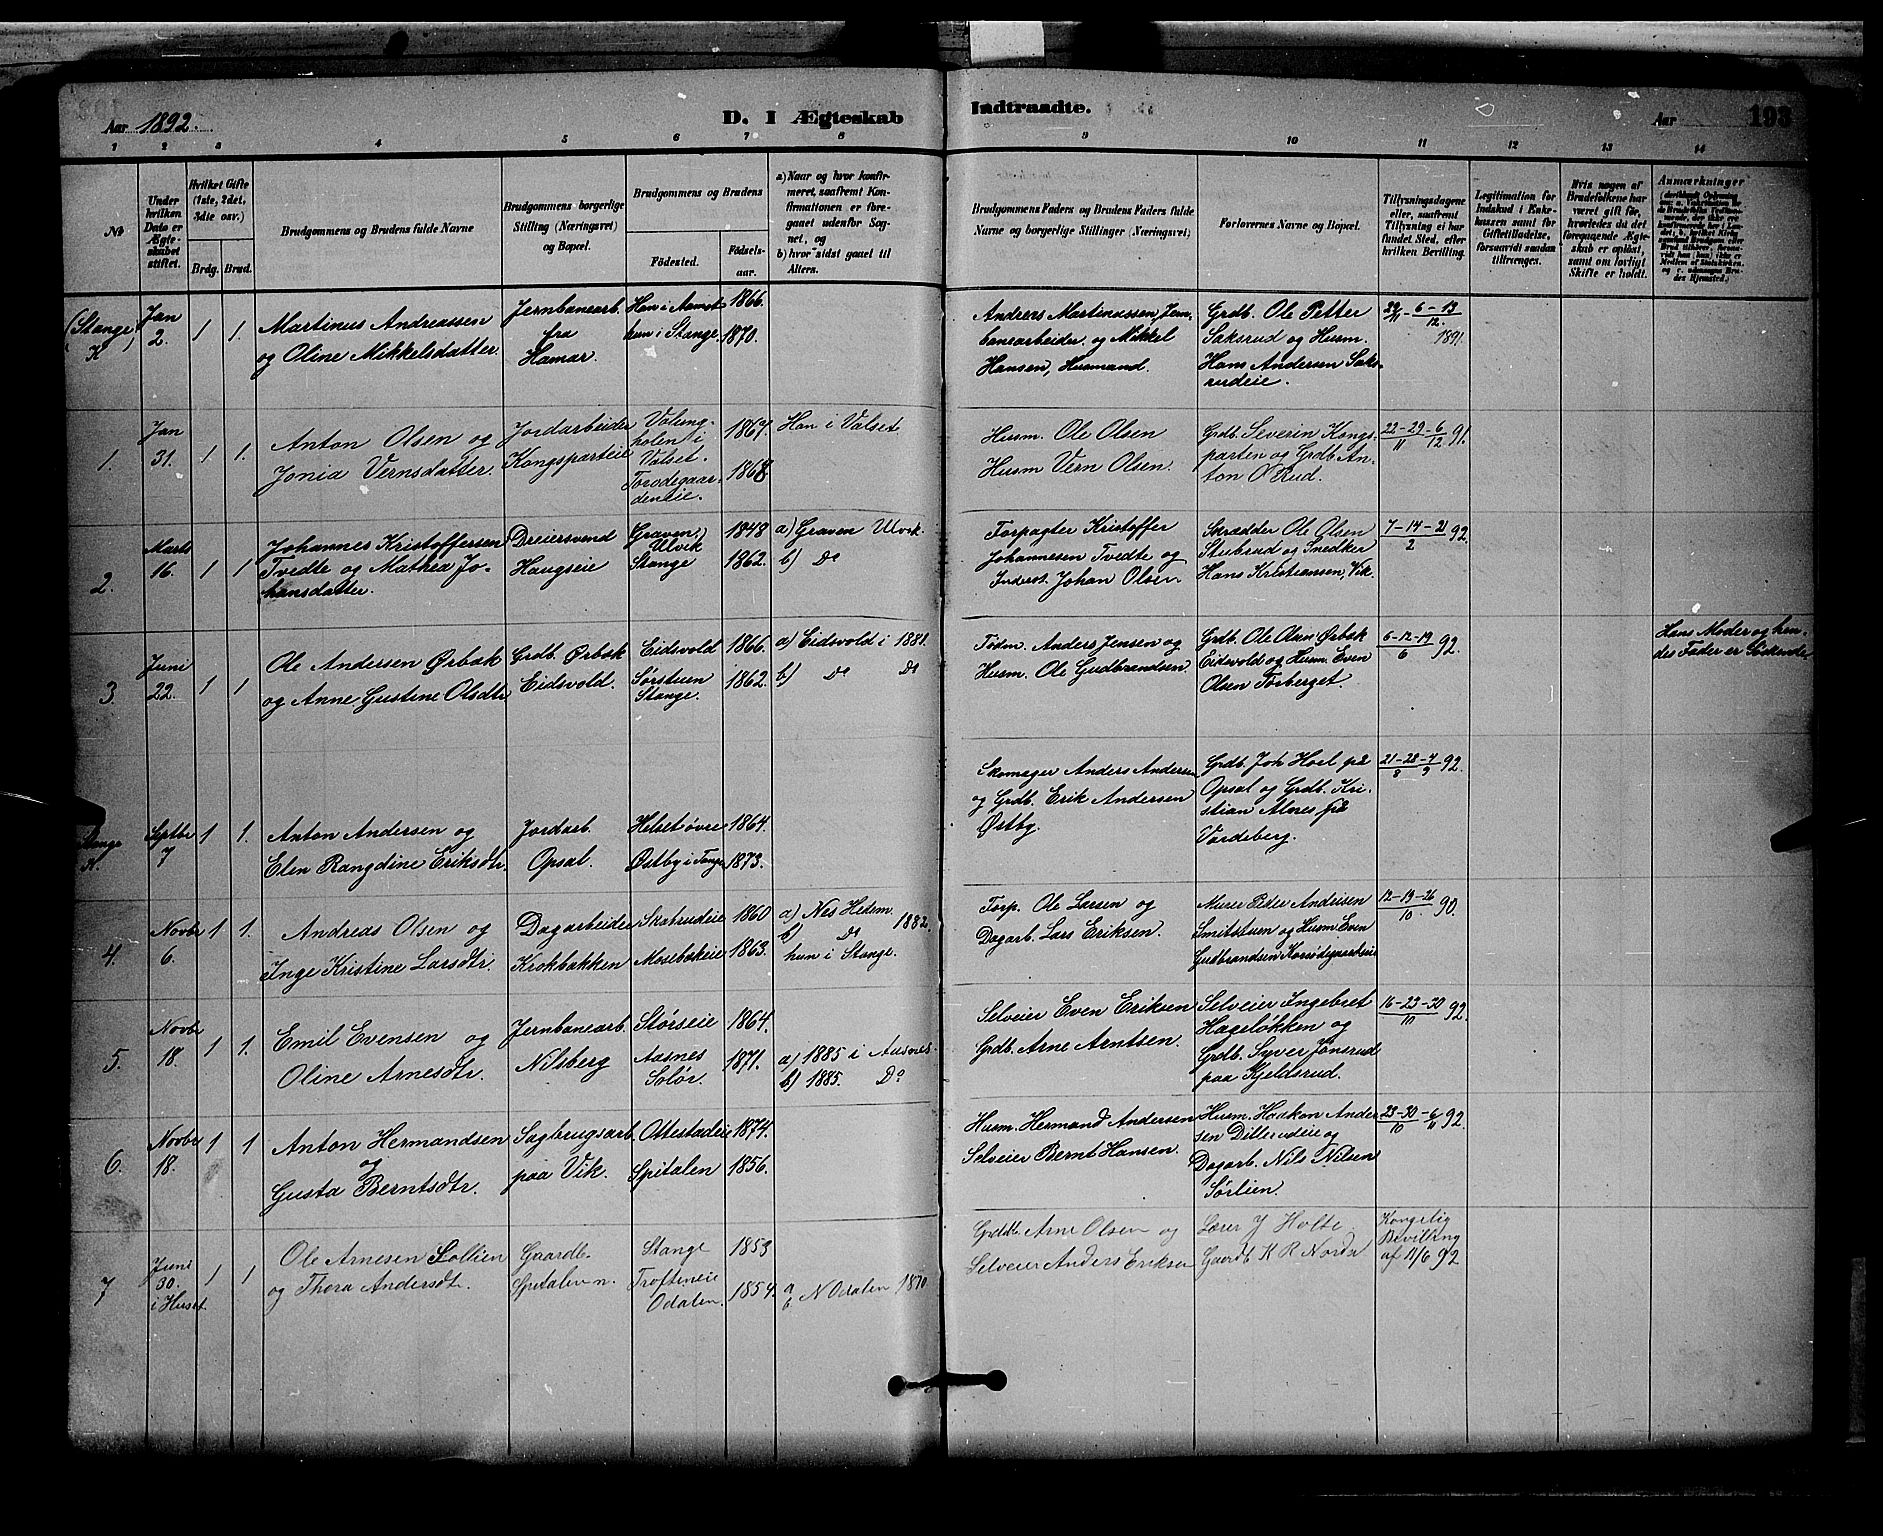 Aar 1892.
D. I Ægteskab Indtraadte.
Aar 193
1 2 3 4 5 6 7 8 9 10 11 12 13 14
No
Under hvilken Dato er Ægteskabet stiftet.
Hvilket Gifte (1ste, 2det, 3die osv.)
Brdg. Brud.
Brudgommens og Brudens fulde Navne
Brudgommens borgerlige Stilling (Næringsvei) og Bopæl.
Brudgommens og Brudens
Fødested.
Fødselsaar.
a) Naar og hvor konfirmeret, saafremt Konfirmationen er foregaaet udenfor Sognet, og
b) hvor sidst gaaet til Alters.
Brudgommens Faders og Brudens Faders fulde Navne og borgerlige Stillinger (Næringsvei)
Forlovernes Navne og Bopæl.
Tillysningsdagene eller, saafremt Tillysning ei har fundet Sted, efter hvilken Bevilling.
Legitimation for Indskud i Enkekassen samt for Giftetilladelse, forsaavidt saadan tiltrænges.
Hvis nogen af Brudefolkene har været gift før, hvorledes da det foregaaende Ægteskab er opløst, samt om lovligt Skifte er holdt.
Anmærkninger
(Stange K)
Jan 2.
1 1.
Martinus Andreassen
og Oline Mikkelsdatter.
Jernbanearb.
fra
Hamar.
Han i Aamot
hun i Stange.
1866.
1870.
Andreas Martinussen, Jernbanearbeider og Mikkel
Hansen, Husmand.
Grdb. Ole Petter
Saksrud og Husm.
Hans Andersen Saksrudeie.
29/11 - 6 - 13/12 1891.
1.
Jan 31.
1 1.
Anton Olsen og
Jonia Vernsdatter.
Jordarbeider
Kongsparteie
i
Valset.
Torødegaardeneie.
1867.
1868
Han i Valset.
Husm. Ole Olsen
Husm Vern Olsen.
Grdb. Severin Kongsparten og Grdb. Anton O Rud.
22-29/11-6/12 91.
2.
Marts 16.
1 1
Johannes Kristoffersen
Tvedte og Mathea Johansdatter.
Dreiersvend
Haugseie
Graven,
Ulvik
Stange
1848
1862.
a) Graven Ulvik.
b) Do
Forpagter Kristoffer
Johannesen Tvedte og
Inderst. Johan Olsen
Skrædder Ole Olsen
Stubrud og Snedker
Hans Kristiansen, Vik.
7-14-21/2 92.
3.
Juni 22.
1 1
Ole Andersen Ørbæk
og Anne Gustine Olsdtr
Grdb. Ørbæk
Eidsvold.
Eidsvold
Sørstuen
Stange.
1866.
1862.
a) Eidsvold i 1881.
b) Do Do
Tødm. Anders Jensen og
Husm. Ole Gudbrandsen
Grdb. Ole Olsen Ørbæk
Eidsvold og Husm. Even
Olsen Torberget.
5-12-19/6 92.
Hans Moder og hendes Fader er Sødskende
Stange K.
Septbr 7
1 1.
Anton Andersen og
Elen Rangdine Eriksdtr.
Jordarb.
Opsal.
Helset øvre
Østby i Tange
1864.
1873.
Skomager Anders Andersen
og Grdb. Erik Andersen
Østby.
Grdb. Joh Hoel på
Opsal og Grdb. Kristian Alnes på
Vardeberg.
21-28/8-4/9 92.
4.
Novbr 6.
1 1.
Andreas Olsen og
Inge Kristine Larsdtr.
Dagarbeider
Krokbakken
Skabrudeie
Mosebækeie
1860
1863.
a) Nes Hedem. 1882.
b) Do
hun i Stange.
Torp. Ole Larsen og
Dagarb. Lars Eriksen.
Murer Peder Andrisen
Smitstuen og Husm Even
Gudbrandsen
12-19-26/10. 90.
5.
Novbr 18.
1 1.
Emil Evensen og
Oline Arnesdtr.
Jernbanearb.
Nilsberg
Størseie
Aasnes
Solør.
1864.
1871.
a) 1885 i Aasnes.
b) 1885. Do
Selveier Even Eriksen
Grdb. Arne Arntsen.
Selveier Ingebret
Hageløkken og
Grdb. Syver Jønsrud
paa Kjeldsrud.
16-23-30/10 92.
6.
Novbr 18.
1 1
Anton Hermandsen
og
Gusta Berntsdtr.
Sagbrugsarb.
paa Vik.
Ottestadeie
Spitalen
1874.
1856.
Husm. Hermand Andersen
Selveier Bernt Hansen.
Husm. Haakon Andersen Dillerudeie og
Dagarb. Nils Nilsen
Sørlien.
23-30/10-6/11 92.
7
Juni 30.
i Huset
1 1
Ole Arnesen Sollien
og Thora Andersdtr.
Gaardb.
Spitalen n.
Stange
Trofteneie
Odalen.
1853
1854.
a b N Odalen 1870
Grdb. Arne Olsen og
Selveier Anders Eriksen
Lærer J Holte.
Gaardb. K R Nordsv
Kongelig
Bevilling
af 11/6 92